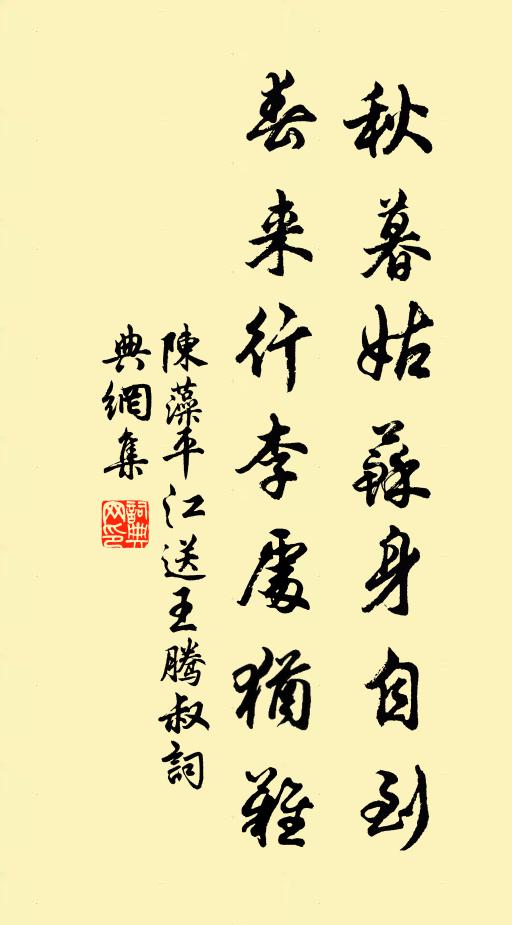 秋暮姑蘇身自到
春来行李處猶難
陳藻平江送王騰叔詞
典網集
詞典
网印